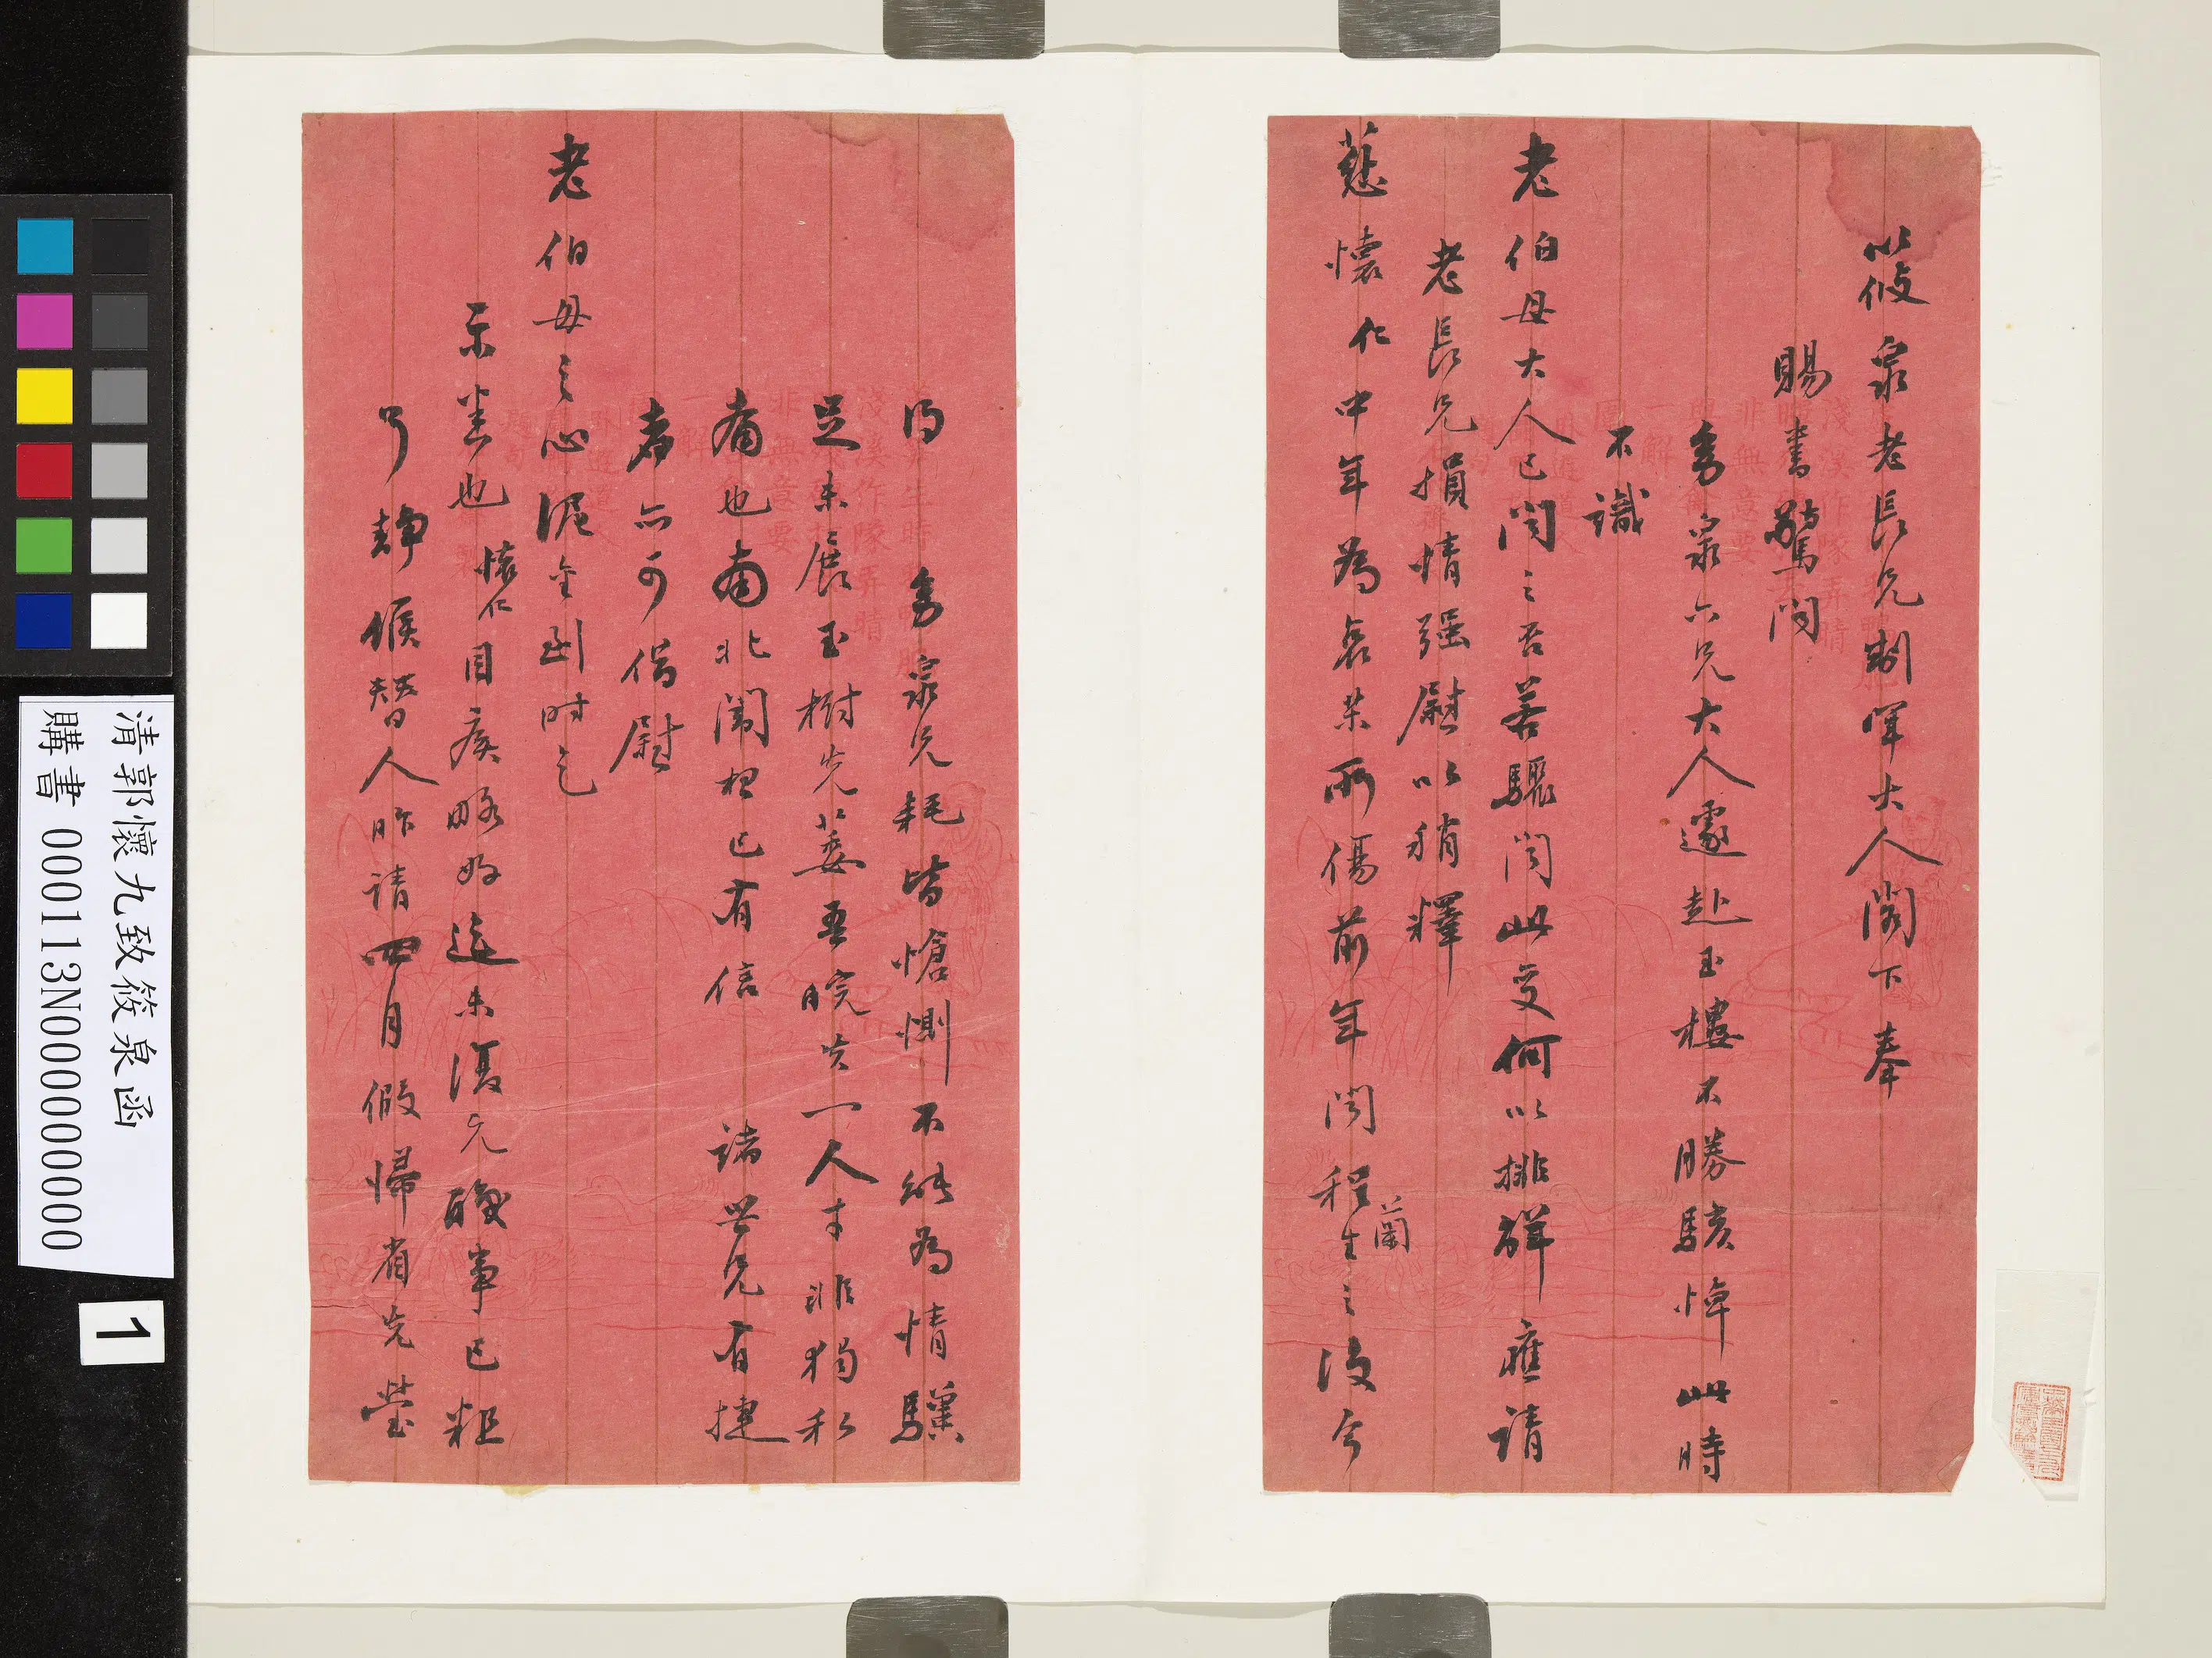 筱泉老長兄制軍大人閣下奉
賜書驚聞
季泉六兄大人遽赴玉樓不勝駭悼此時
不識
老伯母大人已聞之否若驟聞此變何以排解應請
老長兄損情強慰以稍釋
慈懷仁中年為哀樂所傷前年聞程蘭生之沒今
得季泉兄耗皆愴惻不能為情驥
足未展玉樹先萎吾皖失一人才非獨私
痛也南北闈想已有信諸世兄有捷
者亦可借慰
老伯母之心泥金到时乞
示悉也懷仁目疾略好迄未復元醝事已粗
了靜候替人昨請四月假歸省先塋
清郭懷九致筱泉函
購書 000113N000000000
1